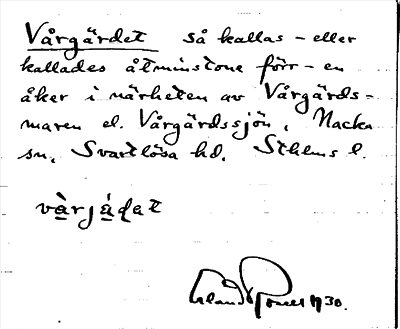 Vårgärdet så kallas – eller
kallades åtminstone förr – en
åker i närheten av Vårgärds-
maren el. Vårgärdssjön, Nacka
sn, Svartlösa hd. Sthlms l.
vàrjádat
1930.